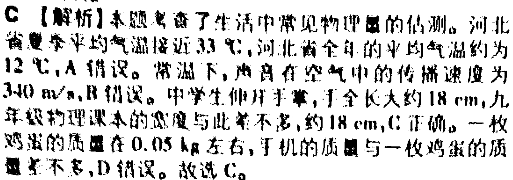 C 【解析】本题考查了生活中常见物理量的估测。河北
省夏季平均气温接近33 ℃,河北省全年的平均气温约为
12 ℃,A 错误。常温下,声音在空气中的传播速度为
340 m/s,B 错误。中学生伸开手掌,手全长大约18 cm,九
年级物理课本的宽度与此差不多,约18 cm,C 正确。一枚
鸡蛋的质量在0.05 kg左右,手机的质量与一枚鸡蛋的质
量差不多,D 错误。故选 C。